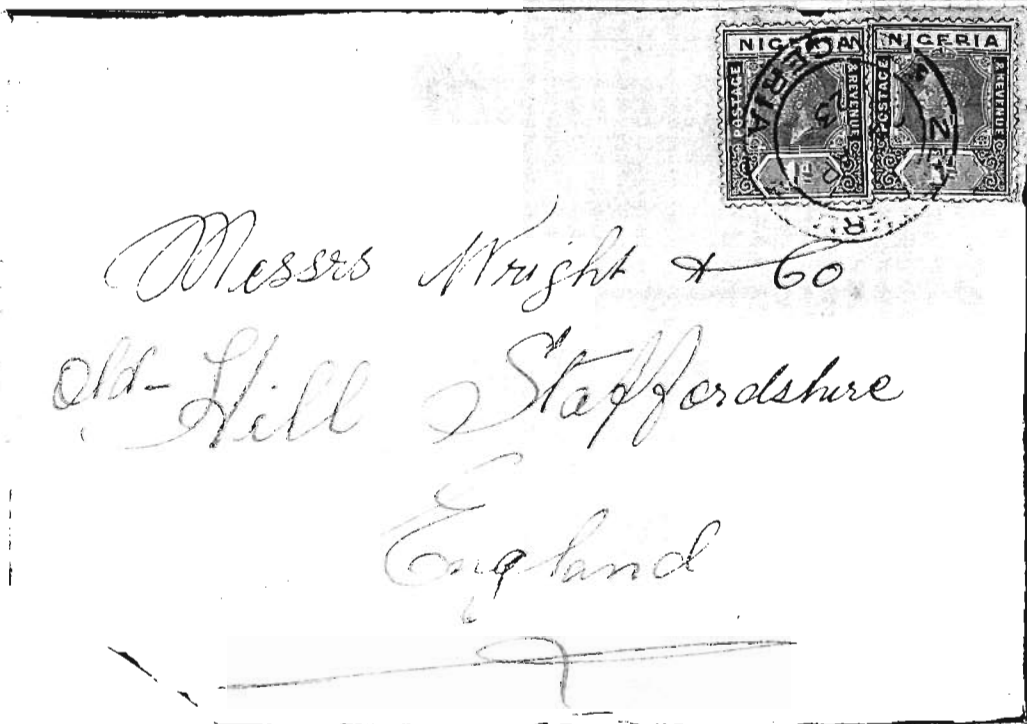 NIGERIA NIGERIA
POSTAGE & REVENUE POSTAGE & REVENUE
Messrs Wright & Co
Old-Hill Staffordshire
England